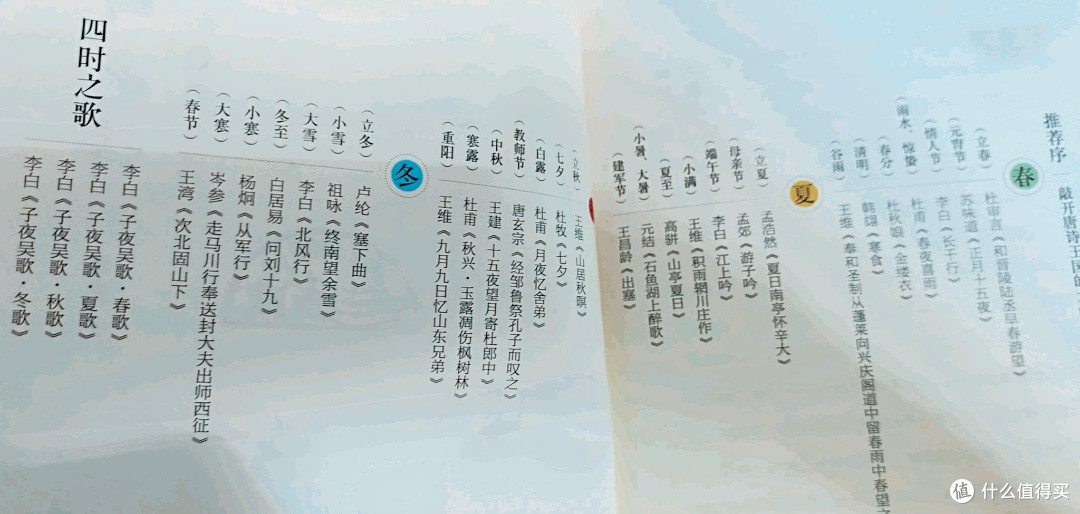 推荐序 敲开唐诗王国的
春
（立春） 杜审言《和晋陵陆丞早春游望》
（元宵节） 苏味道《正月十五夜》
（情人节） 李白《长干行》
（雨水、惊蛰） 杜甫《春夜喜雨》
（春分） 杜秋娘《金缕衣》
（清明） 韩翃《寒食》
（谷雨） 王维《奉和圣制从蓬莱向兴庆阁道中留春雨中春望之
夏
（立夏） 孟浩然《夏日南亭怀辛大》
（母亲节） 孟郊《游子吟》
（端午节） 李白《江上吟》
（小满） 王维《积雨辋川庄作》
（夏至） 高骈《山亭夏日》
（小暑、大暑） 元结《石鱼湖上醉歌》
（建军节） 王昌龄《出塞》
（立秋） 王维《山居秋暝》
（七夕） 杜牧《七夕》
（白露） 杜甫《月夜忆舍弟》
（教师节） 唐玄宗《经邹鲁祭孔子而叹之》
（中秋） 王建《十五夜望月寄杜郎中》
（寒露） 杜甫《秋兴·玉露凋伤枫树林》
（重阳） 王维《九月九日忆山东兄弟》
冬
（立冬） 卢纶《塞下曲》
（小雪） 祖咏《终南望余雪》
（大雪） 李白《北风行》
（冬至） 白居易《问刘十九》
（小寒） 杨炯《从军行》
（大寒） 岑参《走马川行奉送封大夫出师西征》
（春节） 王湾《次北固山下》
四时之歌
李白《子夜吴歌·春歌》
李白《子夜吴歌·夏歌》
李白《子夜吴歌·秋歌》
李白《子夜吴歌·冬歌》
值 什么值得买